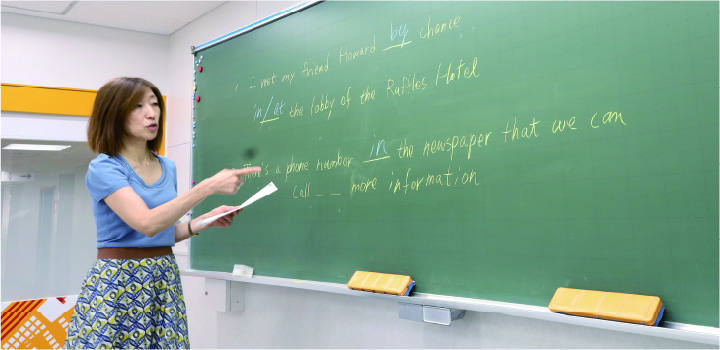 I met my friend Howard by chance
in/at the lobby of the Raffles Hotel
is a phone number in the newspaper that we can
call _ _ more information